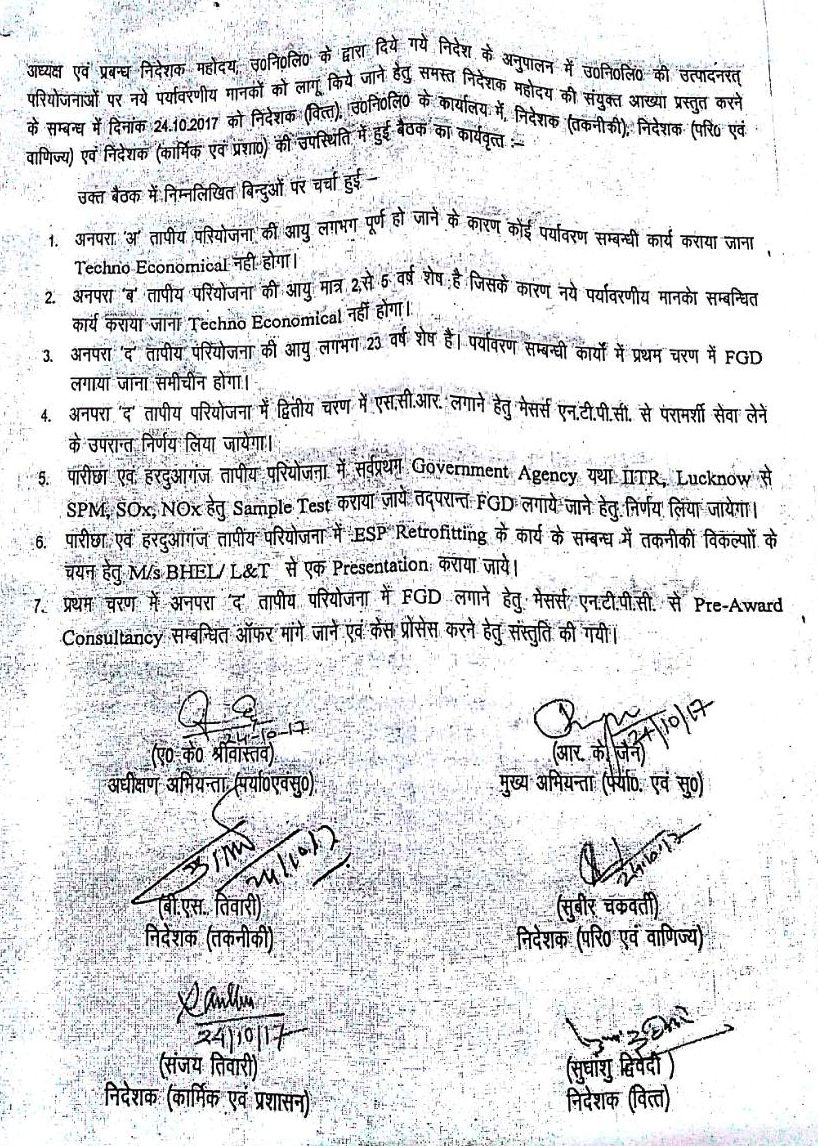 अध्यक्ष एवं प्रबन्ध निदेशक महोदय, उ०नि०लि० के द्वारा दिये गये निदेश के अनुपालन में उ०नि०लि० की उत्पादनरत्
परियोजनाओं पर नये पर्यावरणीय मानकों को लागू किये जाने हेतु समस्त निदेशक महोदय की संयुक्त आख्या प्रस्तुत करने
के सम्बन्ध में दिनांक 24.10.2017 को निदेशक (वित्त), उ०नि०लि० के कार्यालय में, निदेशक (तकनीकी), निदेशक (परि० एवं
वाणिज्य) एवं निदेशक (कार्मिक एवं प्रशा०) की उपस्थिति में हुई बैठक का कार्यवृत्त :–
उक्त बैठक में निम्नलिखित बिन्दुओं पर चर्चा हुई –
1. अनपरा 'अ' तापीय परियोजना की आयु लगभग पूर्ण हो जाने के कारण कोई पर्यावरण सम्बन्धी कार्य कराया जाना
Techno Economical नही होगा।
2. अनपरा 'ब' तापीय परियोजना की आयु मात्र 2 से 5 वर्ष शेष है जिसके कारण नये पर्यावरणीय मानको सम्बन्धित
कार्य कराया जाना Techno Economical नहीं होगा।
3. अनपरा 'द' तापीय परियोजना की आयु लगभग 23 वर्ष शेष है। पर्यावरण सम्बन्धी कार्यों में प्रथम चरण में FGD
लगाया जाना समीचीन होगा।
4. अनपरा 'द' तापीय परियोजना में द्वितीय चरण में एस.सी.आर. लगाने हेतु मेसर्स एन.टी.पी.सी. से परामर्शी सेवा लेने
के उपरान्त निर्णय लिया जायेगा।
5. पारीछा एवं हरदुआगंज तापीय परियोजना में सर्वप्रथम Government Agency यथा IITR, Lucknow से
SPM, SOx, NOx हेतु Sample Test कराया जाये तद्परान्त FGD लगाये जाने हेतु निर्णय लिया जायेगा।
6. पारीछा एवं हरदुआगंज तापीय परियोजना में ESP Retrofitting के कार्य के सम्बन्ध में तकनीकी विकल्पों के
चयन हेतु M/s BHEL/ L&T से एक Presentation कराया जाये।
7. प्रथम चरण में अनपरा 'द' तापीय परियोजना में FGD लगाने हेतु मेसर्स एन.टी.पी.सी. से Pre-Award
Consultancy सम्बन्धित ऑफर मांगे जाने एवं केस प्रोसेस करने हेतु संस्तुति की गयी।
24-10-17
24/10/17
(ए० के० श्रीवास्तव)
(आर. के. जैन)
अधीक्षण अभियन्ता (पर्या०एवसु०)
मुख्य अभियन्ता (पर्या०. एवं सु०)
24/10/17
24.10.17
(बी.एस. तिवारी)
(सुबीर चक्रवर्ती)
निदेशक (तकनीकी)
निदेशक (परि० एवं वाणिज्य)
24/10/17
(संजय तिवारी)
(सुधांशु द्विवेदी)
निदेशक (कार्मिक एवं प्रशासन)
निदेशक (वित्त)